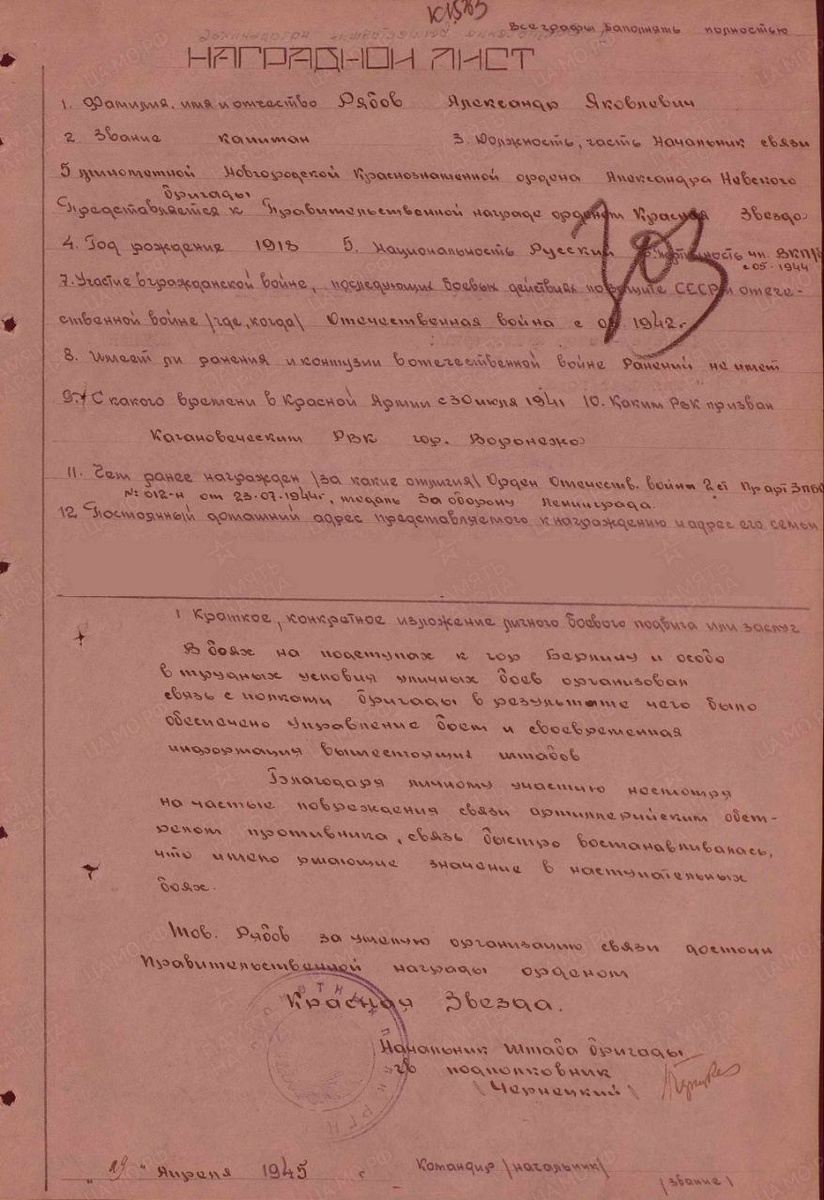 Все графы Заполнять полностью
НАГРАДНОЙ ЛИСТ
1. Фамилия, имя и отчество Рябов Александр Яковлевич
2 Звание капитан 3. Должность, часть Начальник связи
5 минометной Новгородской Краснознаменной ордена Александра Невского
бригады
Представляется к Правительственной награде орденом Красная Звезда
4. Год рождения 1918 5. Национальность Русский чл. ВКП/б
с 05.1944
7. Участие в гражданской войне, последующих боевых действиях по защите СССР и отече-
ственной войне /где, когда/ Отечественная война с 1942г.
8. Имеет ли ранения и контузии в отечественной войне Ранений не имет
9. С какого времени в Красной Армии с 30 июля 1941 10. Каким РВК призван
Кагановеческим РВК гор. Воронежа
11. Чем ранее награжден /за какие отличия/ Орден Отечеств. война 2 ст Пр арт 3ПБФ
№ 012-н от 23.07.1944г, медаль За оборону Ленинграда.
12 Постоянный домашний адрес представляемого к награждению и адрес его семьи
1 Краткое, конкретное изложение личного боевого подвига или заслуг
В боях на подступах к гор Берлину и особо
в трудных условия уличных боев организовал
связь с полками бригады в результате чего было
обеспечено управление боем и своевременная
информация вышестоящих штабов
Благодаря личному участию несмотря
на частые повреждения связи артиллерийским обст-
релом противника, связь быстро востанавливалась,
что имело ршающие значение в наступательных
боях.
Тов. Рябов за умелую организацию связи достоин
Правительственной награды орденом
Красная Звезда.
Начальник штаба бригады
гв подполковник
\Чернецкий\
"29" Апреля 1945 г Командир /начальник/
/звание/